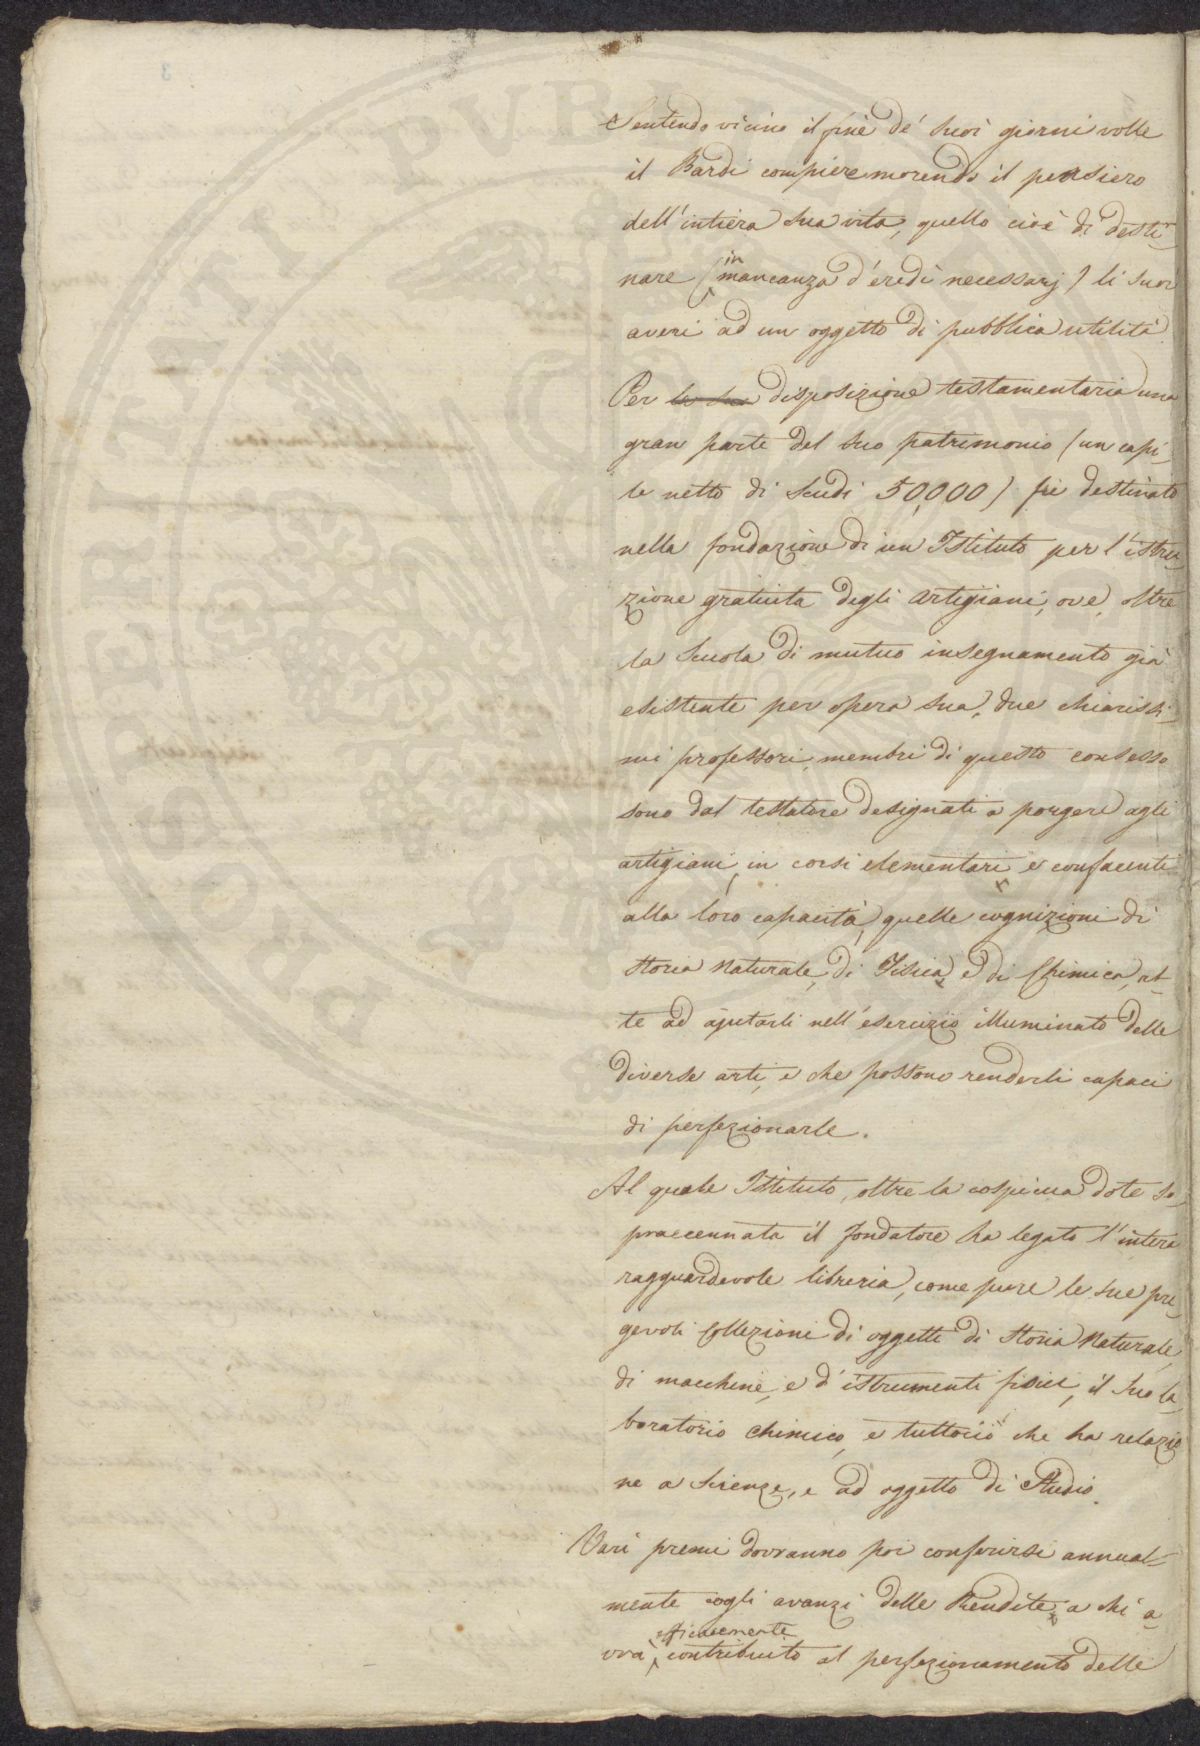 Sentendo vicino il fine de' suoi giorni volle
il Bardi compiere morendo il pensiero
dell'intiera sua vita, quello cioè di desti-
nare (in mancanza d'eredi necessarj) li suoi
averi ad un oggetto di pubblica utilità.
Per la sua disposizione testamentaria una
gran parte del suo patrimonio (un capi-
le netto di scudi 50,000) fu destinato
nella fondazione di un Istituto per l'istru-
zione gratuita degli artigiani, ove, oltre
la scuola di mutuo insegnamento già
esistente per opera sua, due chiarissi-
mi professori, membri di questo consesso
sono dal testatore designati a porgere agli
artigiani, in corsi elementari e confacenti
alla loro capacità, quelle cognizioni di
storia naturale, di Fisica, e di Chimica, at-
te ad ajutarli nell'esercizio illuminato delle
diverse arti, e che possono renderli capaci
di perfezionarle.
Al quale Istituto, oltre la cospicua dote so-
praccennata il fondatore ha legato l'intera
ragguardevole libreria, come pure le sue pre-
gevoli collezioni di oggetti di storia naturale,
di macchine, e d'istrumenti fisici, il suo la-
boratorio chimico, e tuttociò che ha relazio
ne a scienze, e ad oggetto di studio.
Varj premi dovranno poi conferirsi annual-
mente cogli avanzi delle Rendite, a chi a-
vrà efficacemente contribuito al perfezionamento delle
PVBLICI
3